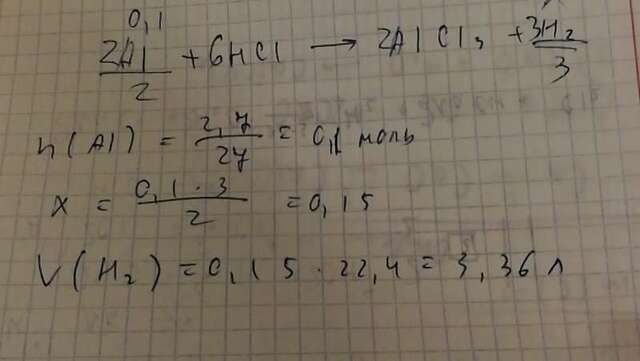 0,1
2Al + 6HCl → 2AlCl3 + 3H2
2 3
n(Al) = 2,7/27 = 0,1 моль
x = 0,1·3/2 = 0,15
V(H2) = 0,15·22,4 = 3,36 л